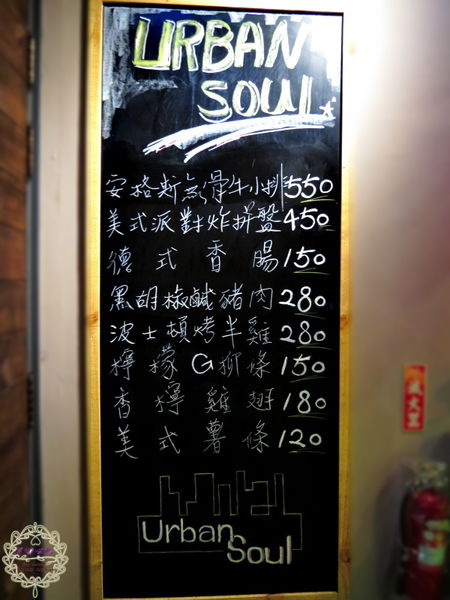 URBAN
SOUL
安格斯無骨牛小排 550
美式派對炸拼盤 450
德式香腸 150
黑胡椒鹹豬肉 280
波士頓烤半雞 280
檸檬G柳條 150
香檸雞翅 180
美式薯條 120
Urban
Soul
滅火器